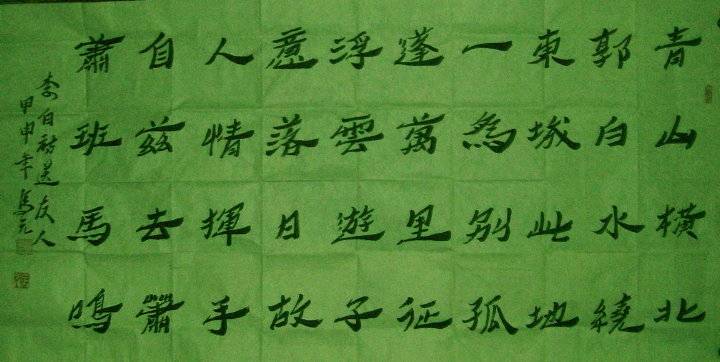 青山橫北
郭白水繞
東城此地
一為別孤
蓬萬里征
浮雲遊子
意落日故
人情揮手
自茲去簫
蕭班馬鳴
李白詩送友人
甲申年